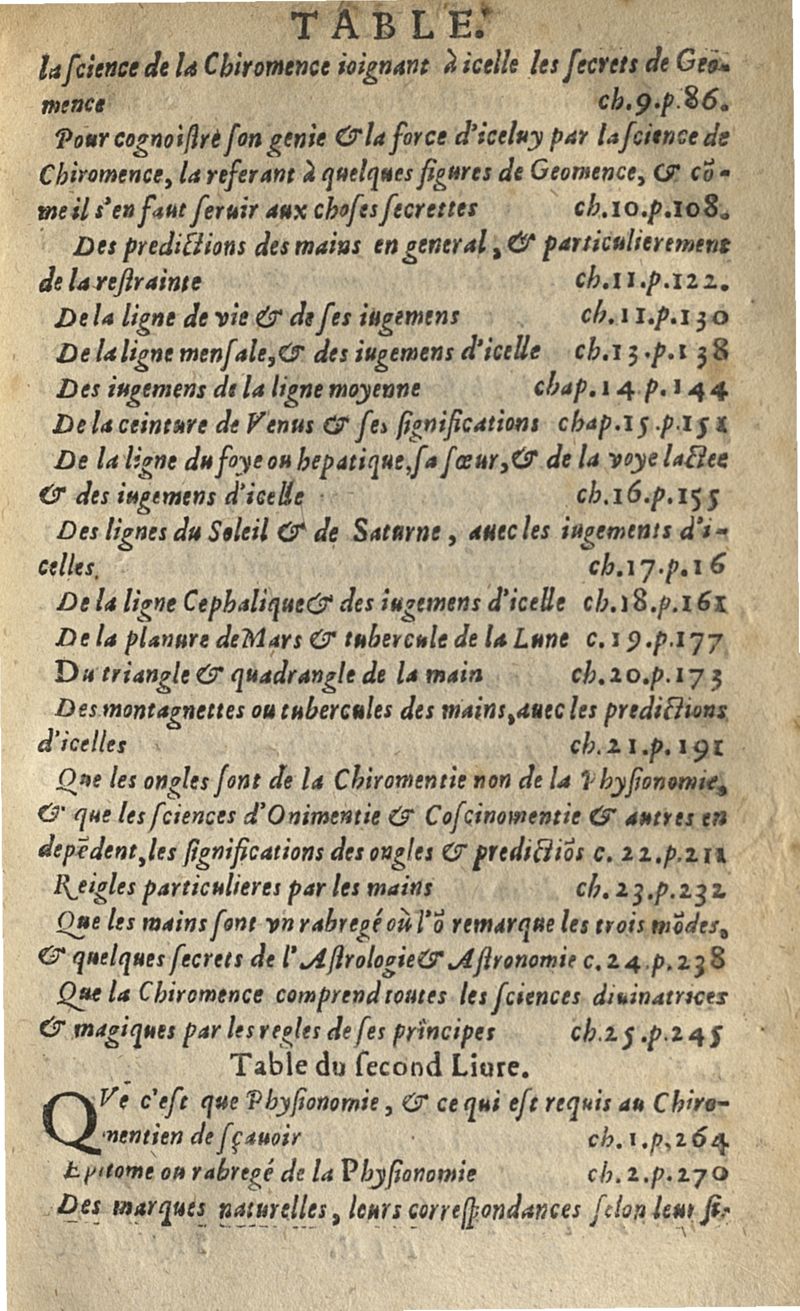 TABLE.
la ſcience de la Chiromence ioignant à icelle les ſecrets de Geo-
mence ch.9.p.86.
Pour cognoiſtre ſon genie & la force d'iceluy par la ſcience de
Chiromence, la referant à quelques figures de Geomence, & cõ-
me il s'en faut ſeruir aux choſes ſecrettes ch.10.p.108.
Des predictions des mains en general, & particulierement
de la reſtrainte ch.11.p.122.
De la ligne de vie & de ſes iugemens ch.11.p.130
De la ligne menſale, & des iugemens d'icelle ch.13.p.138
Des iugemens de la ligne moyenne chap.14.p.144
De la ceinture de Venus & ſes ſignifications chap.15.p.151
De la ligne du foye ou hepatique, ſa ſœur, & de la voye lactee
& des iugemens d'icelle ch.16.p.155
Des lignes du Soleil & de Saturne, auec les iugements d'i-
celles. ch.17.p.16
De la ligne Cephalique & des iugemens d'icelle ch.18.p.161
De la planure de Mars & tubercule de la Lune c.19.p.177
Du triangle & quadrangle de la main ch.20.p.173
Des montagnettes ou tubercules des mains, auec les predictions
d'icelles ch.21.p.191
Que les ongles ſont de la Chiromentie non de la Phyſionomie,
& que les ſciences d'Onimentie & Coſcinomentie & autres en
depẽdent, les ſignifications des ongles & predictiõs c. 22.p.211
Reigles particulieres par les mains ch.23.p.232
Que les mains ſont vn rabregé où l'õ remarque les trois mõdes,
& quelques ſecrets de l'Aſtrologie & Aſtronomie c.24.p.238
Que la Chiromence comprend toutes les ſciences diuinatrices
& magiques par les regles de ſes principes ch.25.p.245
Table du ſecond Liure.
QVe c'eſt que Phyſionomie, & ce qui eſt requis au Chiro-
mentien de ſçauoir ch.1.p.264
Epitome ou rabregé de la Phyſionomie ch.2.p.270
Des marques naturelles, leurs correſpondances ſelon leur ſi-